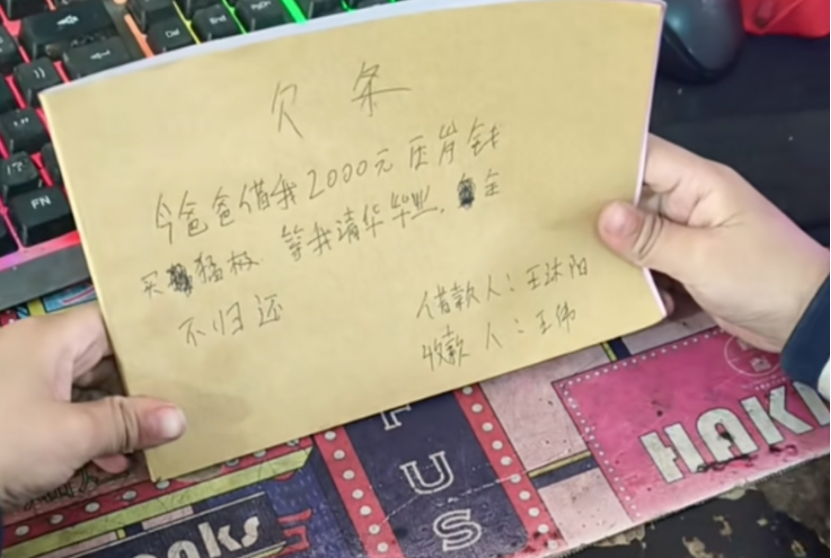 欠条
今爸爸借我2000元压岁钱
买猛极. 等我清华毕业, 全
不归还
借款人:王沐阳
收款人:王伟
FN
US